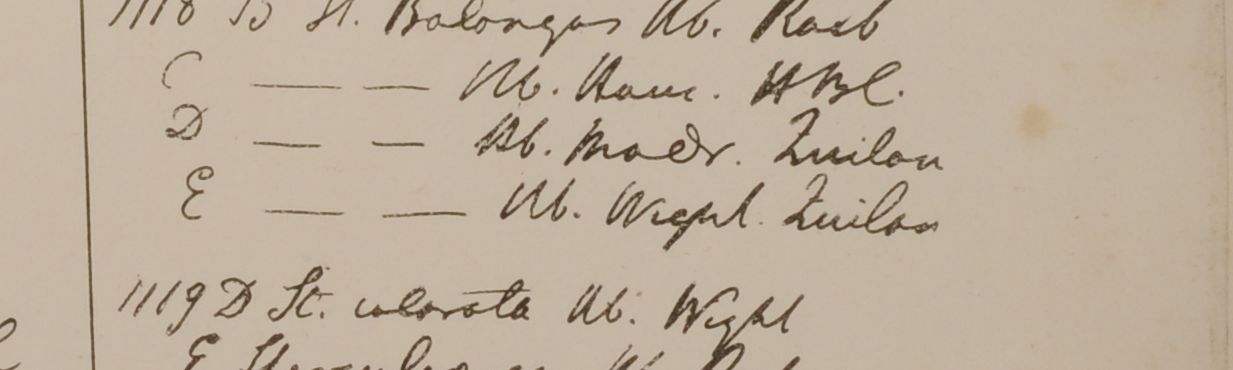 1118 B St. Balongas Ab. Roxb
C — — Ab. Ham. HBC.
D — — Ab. Madr. Zuilan
E — — Ab. Wight. Zuilan
1119 D St. colorata Ab. Wight
E